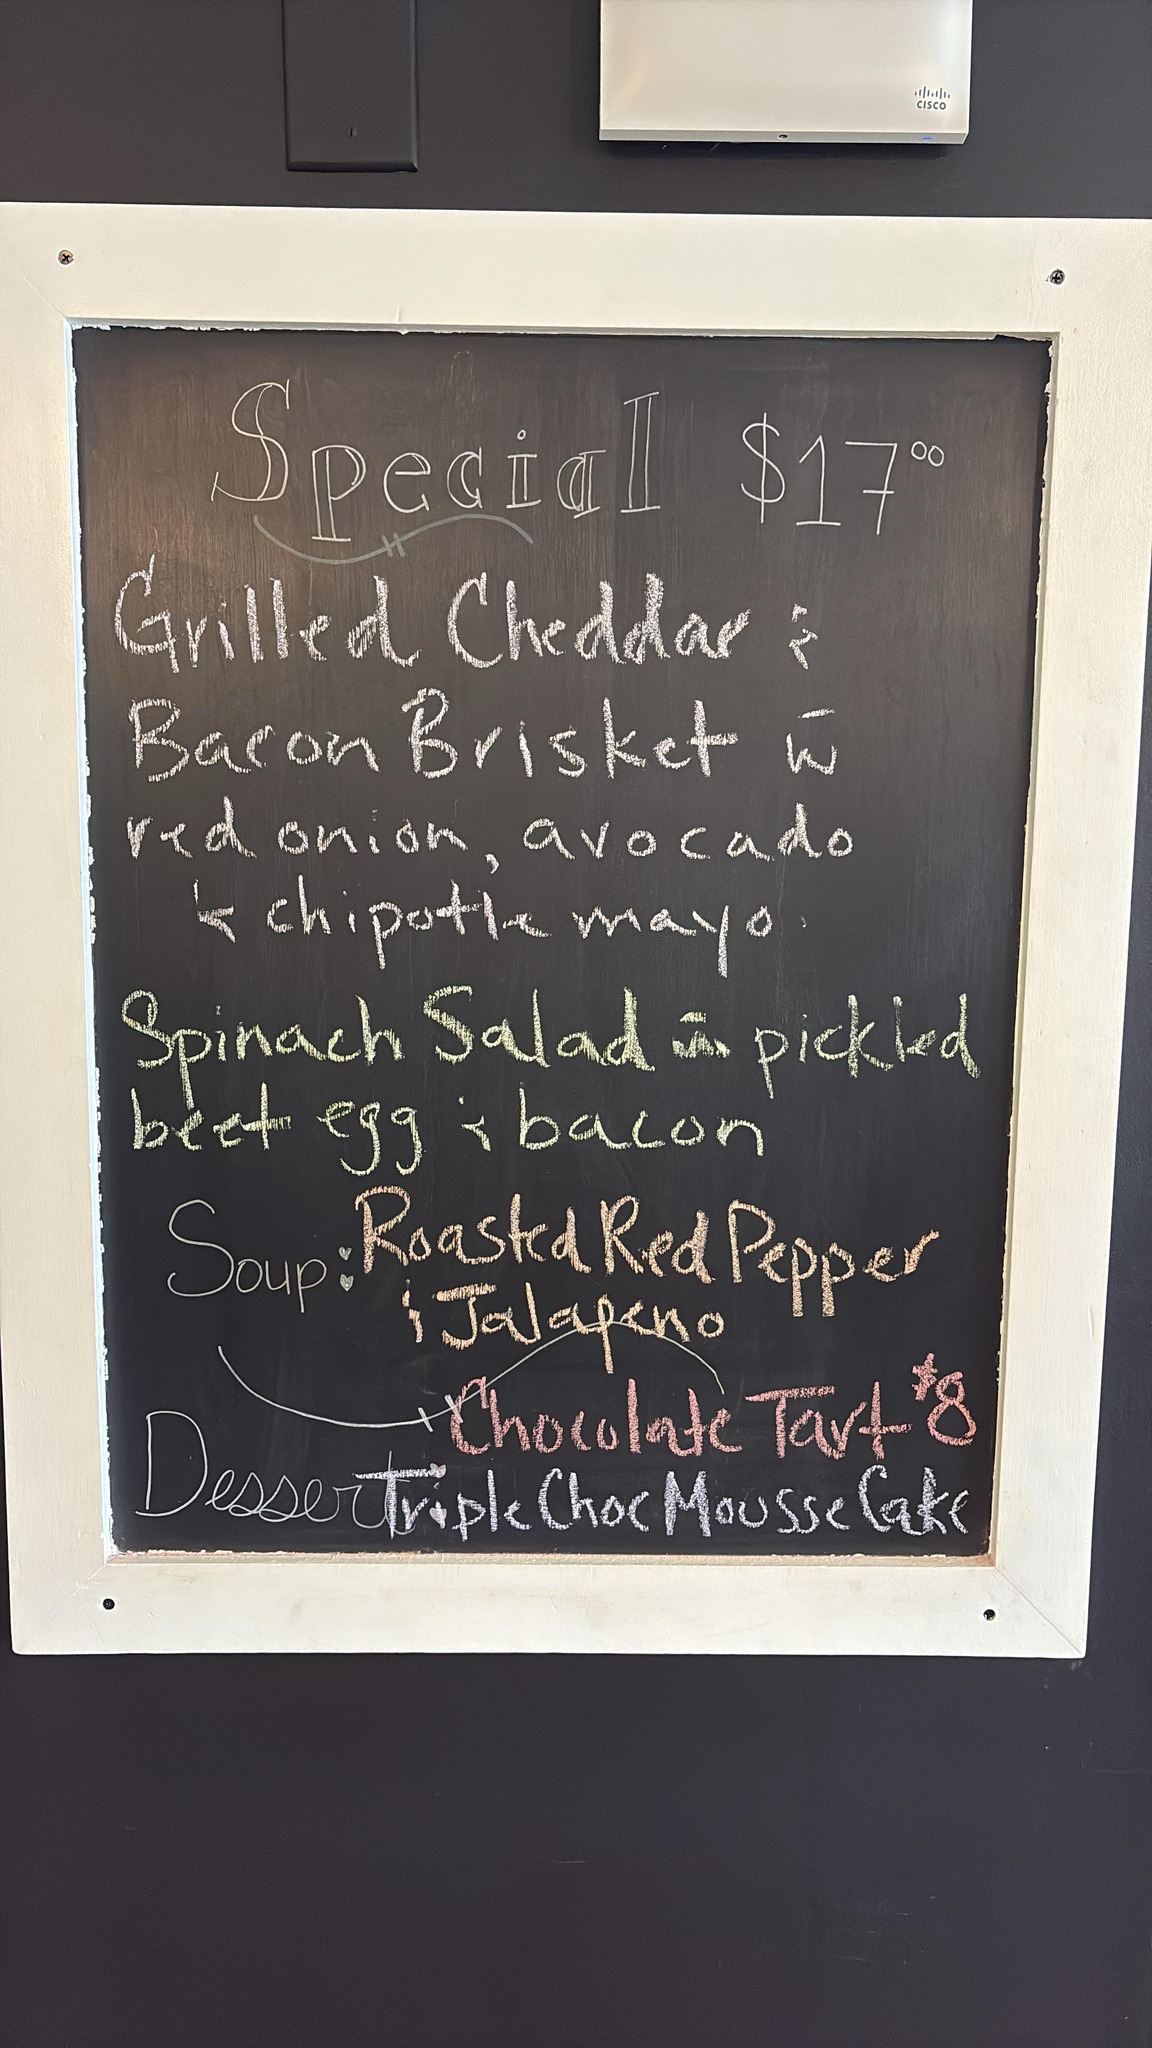 CISCO
Special $17⁰⁰
Grilled Cheddar &
Bacon Brisket w̄
red onion, avocado
& chipotle mayo.
Spinach Salad w̄ pickled
beet egg & bacon
Soup: Roasted Red Pepper
& Jalapeno
Chocolate Tart $8
Dessert: Triple Choc Mousse Cake